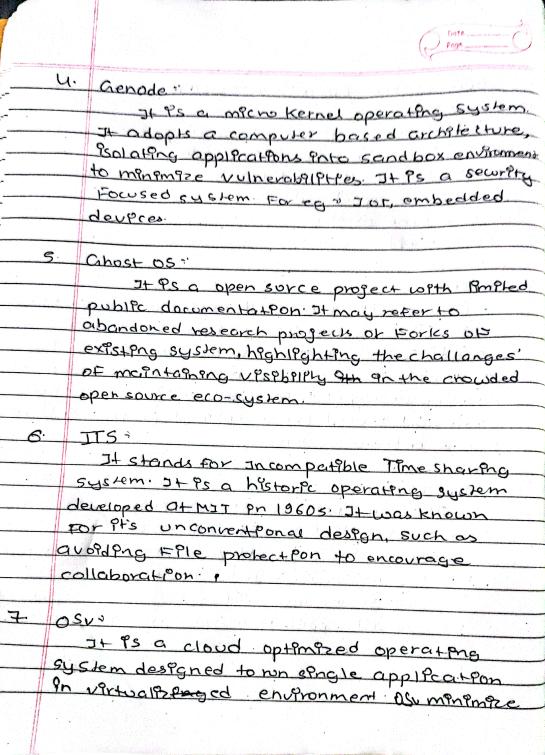 Date
Page
4. Genode :-
It is a micro kernel operating system.
It adopts a computer based architecture,
isolating applications into sandbox enviroment
to minimize vulnerabilities. It is a security
Focused system. For eg :- IoT, embedded
devices.
5. Ghost OS :-
It is a open surce project with limited
public documentation. It may refer to
abandoned research projects or Forks of
existing system, highlighting the challanges
of maintaining visibility in the crowded
open source eco-system.
6. ITS :-
It stands for Incompatible Time sharing
system. It is a historic operating system
developed at MIT in 1960s. It was known
For it's unconventional design, such as
avoiding File protection to encourage
collaboration.
7. OSv :-
It is a cloud optimized operating
system designed to run single application
in virtualized environment. OSv minimize